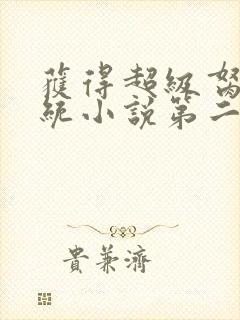 獲得超級
統小說第二
貴兼濟